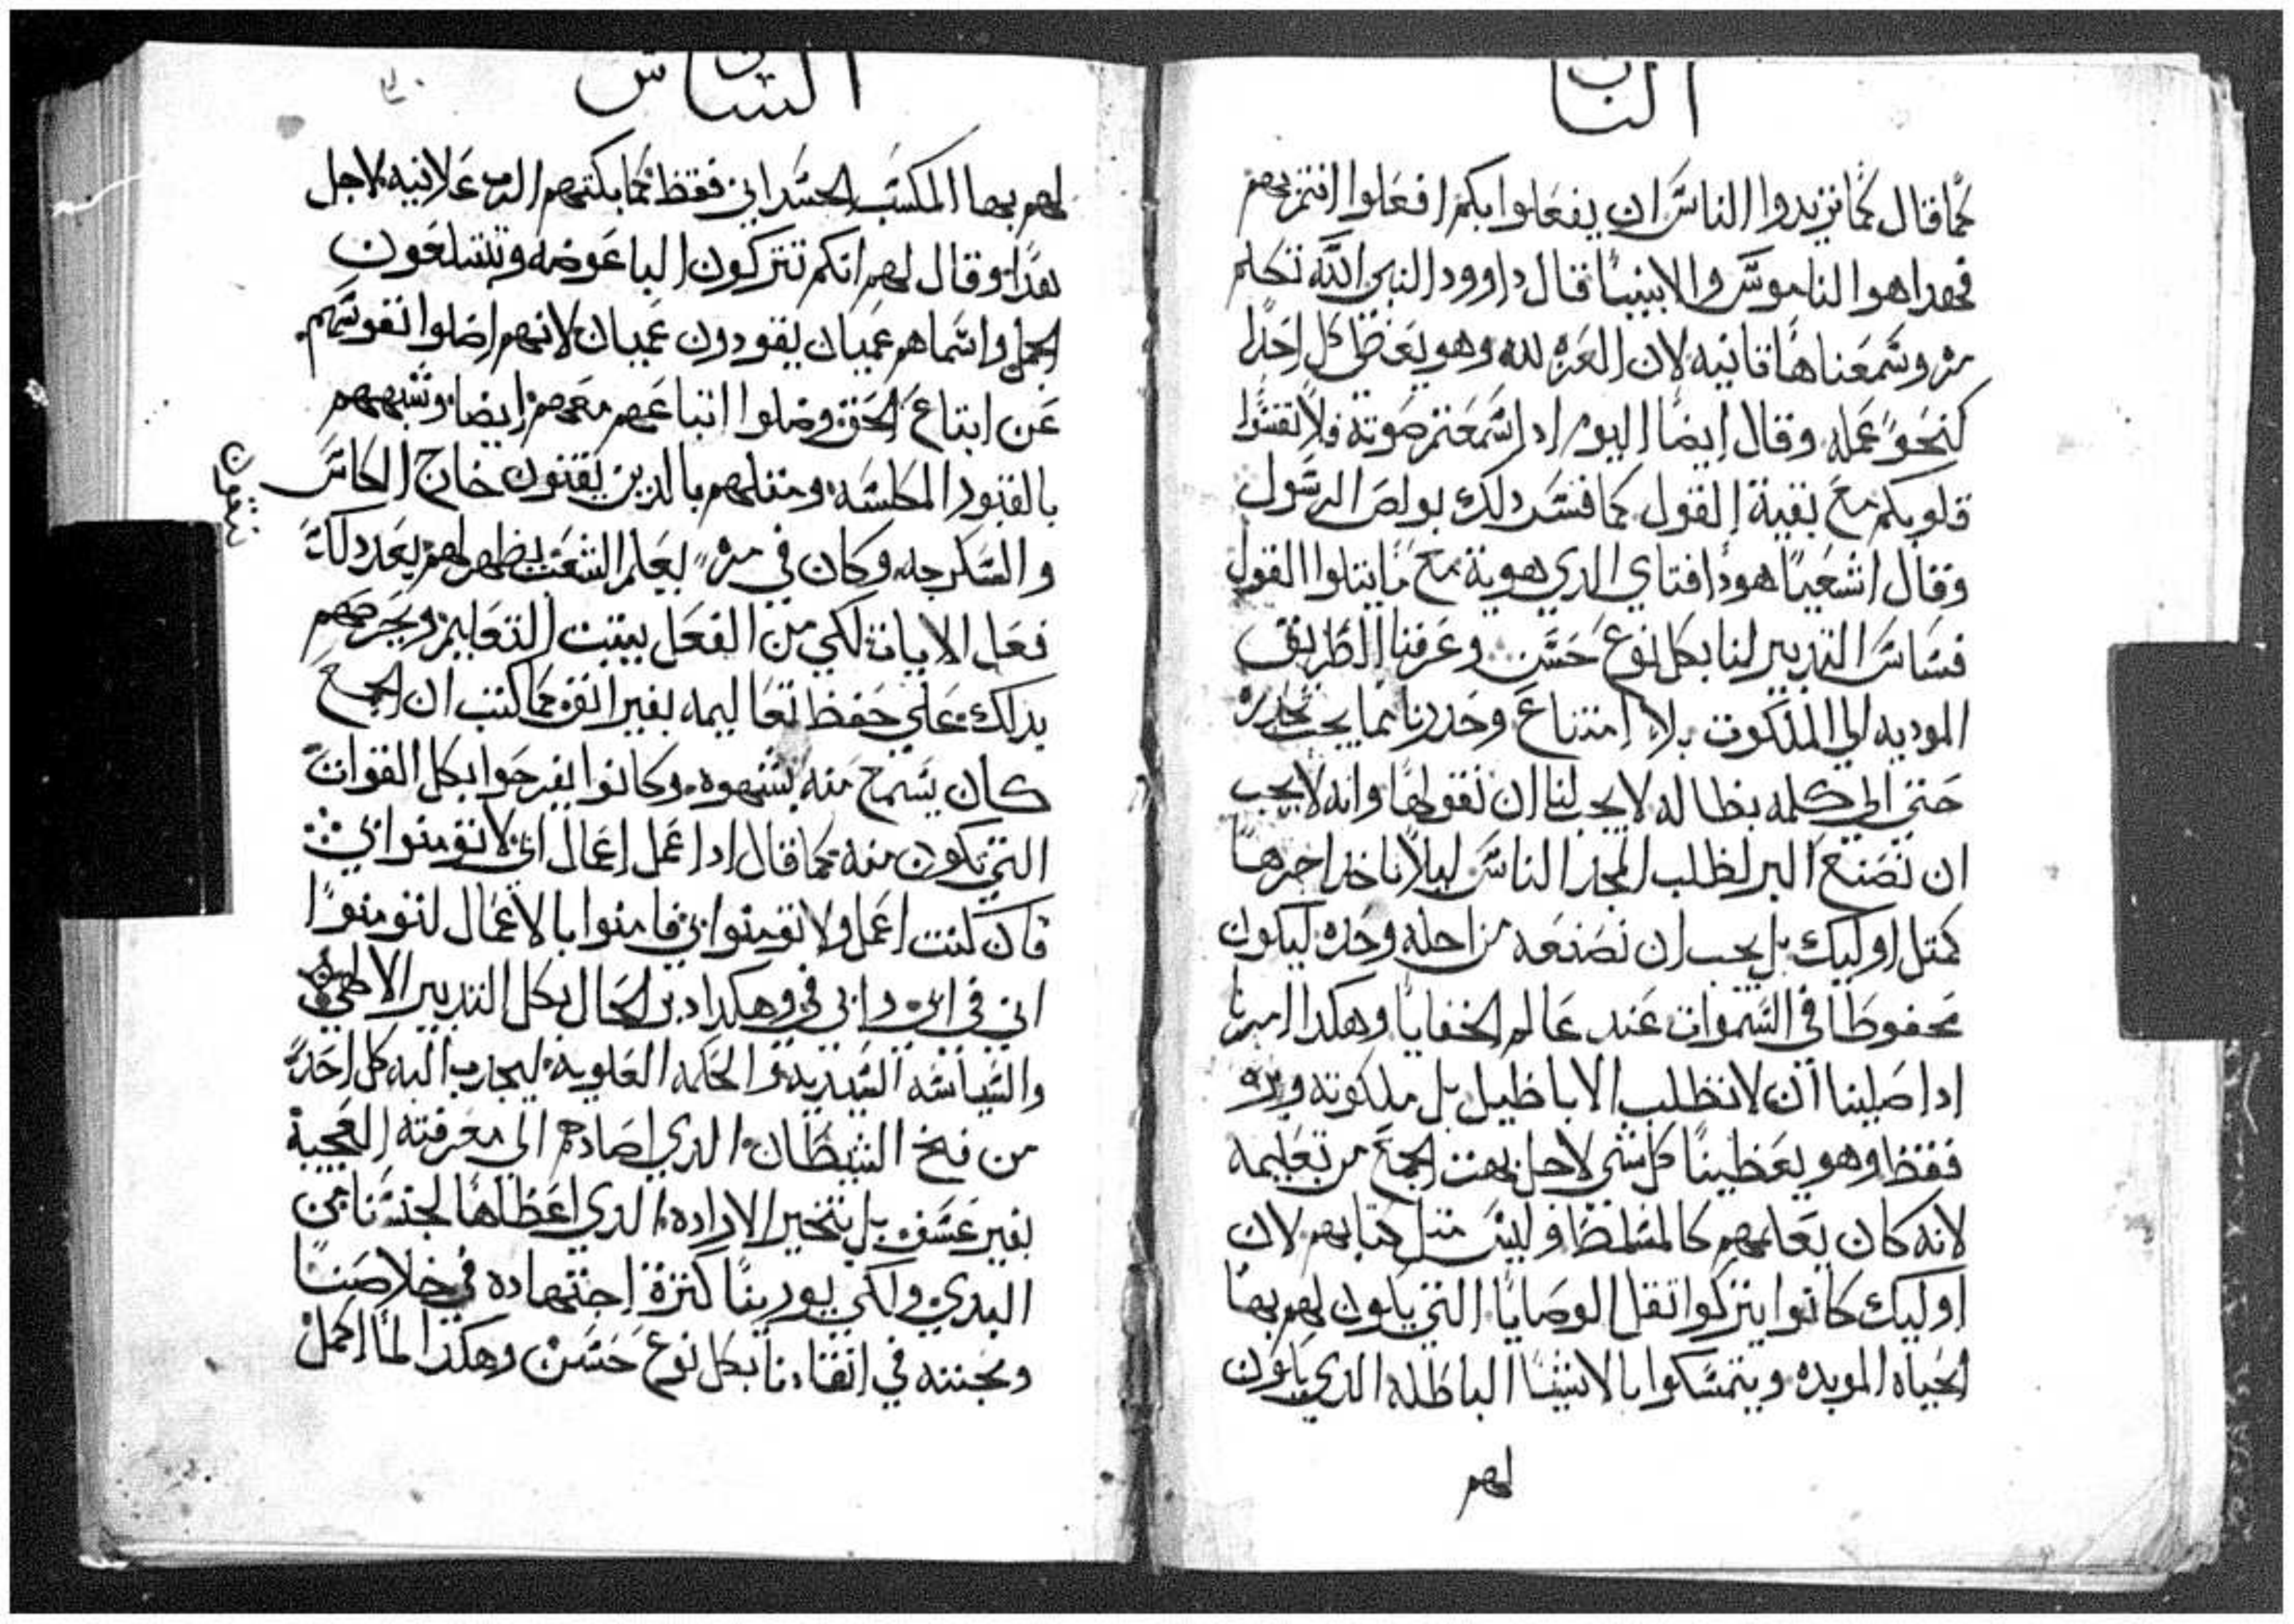 الباب
كما قال كما تريدوا الناس ان يفعلوا بكم افعلوا انتم بهم
فهدا هوا الناموس والابنيا قال داوود النبي الله تكلم
مره وسمعناها تانيه لان العزه لله وهو يعطي كل احدا
كنحو عمله وقال ايضا اليوم ادا سمعتم صوته فلا تقسوا
قلوبكم مع بقية القول كما فسر دلك بولص الرسول
وقال اشعيا هودا فتاي الدي هويته مع ما يتلوا القول
فساس التدبير لنا بكل نوع حسن وعرفنا الطريق
الموديه الي الملكوت بلا امتناع وحدرنا مما يجب تحدره
حتي الي كلمه بطاله لا يجب لنا ان نقولها وانه لا يجب
ان نصنع البر لطلب المجد الناس ليلا ناخد اجرها
كمتل اوليك بل يجب ان نصنعه من اجله وحده ليكون
محفوطا في السموات عند عالم الخفايا وهكدا امرنا
ادا صلينا ان لا نطلب الاباطيل بل ملكوته وبره
فقط وهو يعطينا كل شي لاجل بهت الجمع من تعليمه
لانه كان يعلمهم كالمسلط وليس متل كتابهم لان
اوليك كانوا يتركوا تقل الوصايا التي يكون لهم بها
الحياه الموبده ويتمسكوا بالاشيا الباطله الدي يكون
لهم
السادس
لهم بها المكسب الجسداني فقط كما بكتهم الرب علانيه لاجل
هدا وقال لهم انكم تتركون الباعوضه وتبتلعون
الجمل واسماهم عميان يقودون عميان لانهم اضلوا نفوسهم
عن ابتاع الحق وضلوا اتباعهم معهم ايضا وشبههم
بالقبور المكلسه ومتلهم بالدين ينقون خارج الكاس
والسكرجه وكان في مره يعلم الشعب يظهر لهم بعد دلك
فعل الايات لكي من الفعل يتبت التعاليم ويحرضهم
بدلك علي حفظ تعاليمه بغير انف كما كتب ان الجمع
كان يسمع منه بشهوه وكانوا يفرحوا بكل القوات
التي تكون منه كما قال ادا عمل اعمال ابي لا تومنوا بي
فان كنت اعمل ولا تومنوا بي فامنوا بالاعمال لتومنوا
اني في ابي وابي في وهكدا دبر الحال بكل التدبير الالهي
والسياسه السيديه والحكمه العلويه ليجدب اليه كل احد
من فخ الشيطان الدي اصادهم الي معرفته العجيبة
بغير عسف بل بتخير الاراده الدي اعطاها لجنسنا من
البدي ولكي يورينا كترة اجتهاده في خلاصنا
ومحبته في انقادنا بكل نوع حسن وهكدا لما اكمل